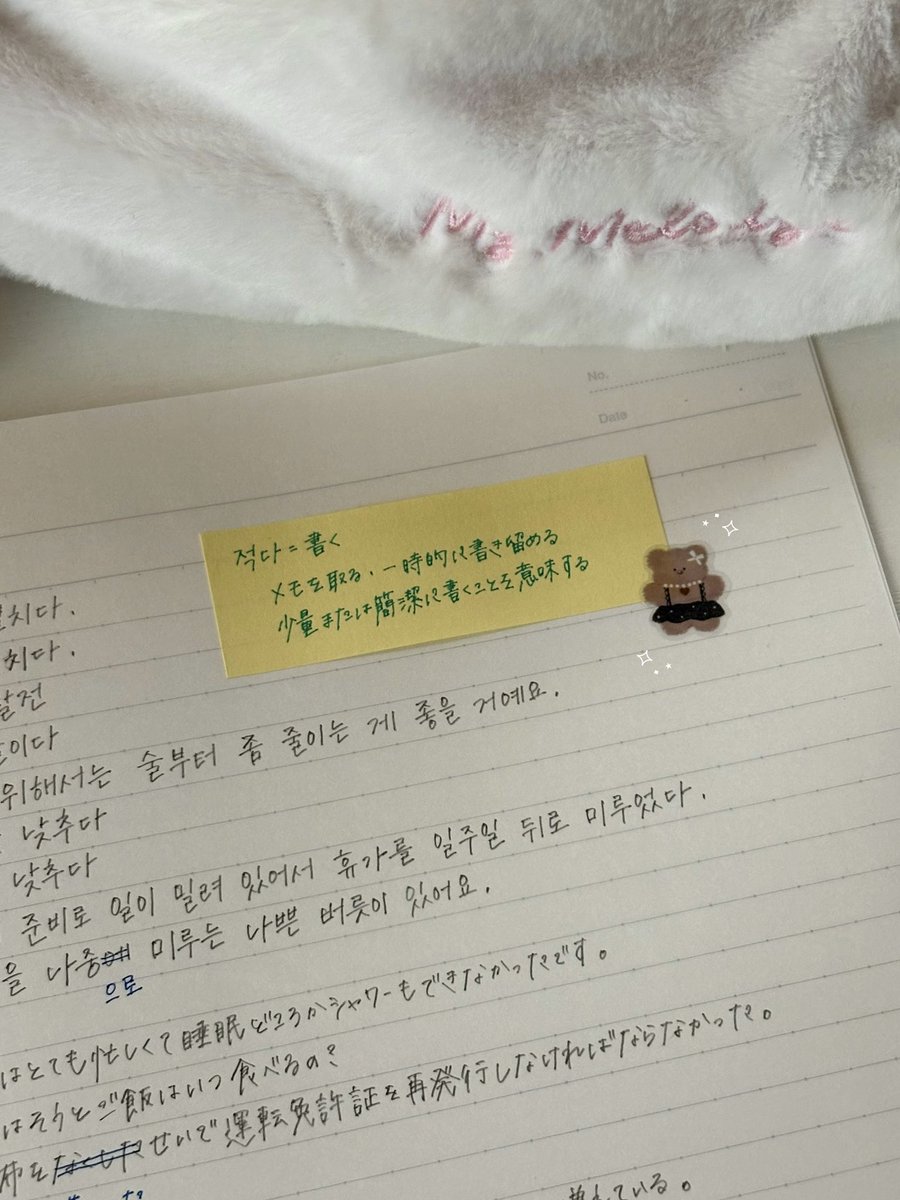 My Melody
No.
Date
적다 = 書く
メモを取る、一時的に書き留める
少量または簡潔に書くことを意味する
치다.
치다.
발전
이다
위해서는 술부터 좀 줄이는 게 좋을 거예요.
낮추다
낮추다
준비로 일이 밀려 있어서 휴가를 일주일 뒤로 미루었다.
을 나중에 미루는 나쁜 버릇이 있어요.
으로
はとても忙しくて睡眠どころかシャワーもできなかったです。
はそうとご飯はいつ食べるの?
布をなくしたせいで運転免許証を再発行しなければならなかった。
ている。